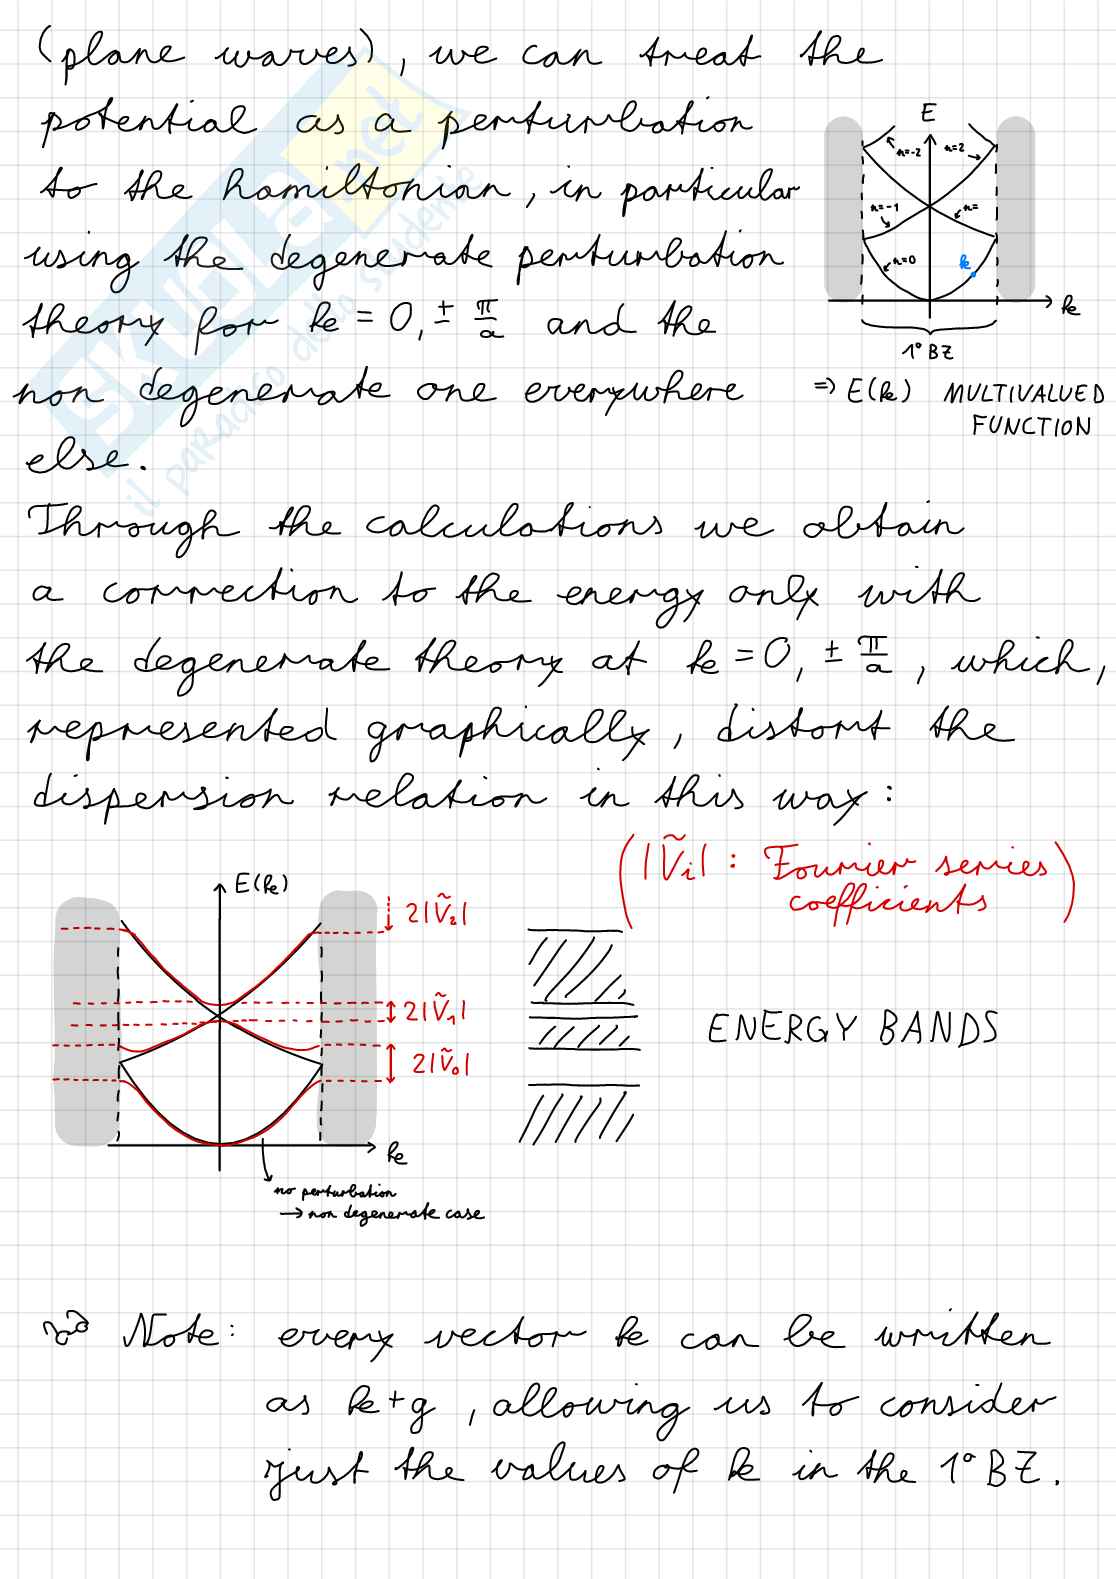 (plane waves), we can treat the
potential as a perturbation
to the hamiltonian, in particular
using the degenerate perturbation
theory for k = 0, ± π/a and the
non degenerate one everywhere
else.
E
n=-2
n=2
n=-1
n=
n=0
k
k
1° BZ
⇒ E(k) MULTIVALUED
FUNCTION
Through the calculations we obtain
a correction to the energy only with
the degenerate theory at k = 0, ± π/a, which,
represented graphically, distort the
dispersion relation in this way:
(|Ṽi| : Fourier series
coefficients)
E(k)
2|Ṽ2|
2|Ṽ1|
2|Ṽ0|
k
no perturbation
→ non degenerate case
ENERGY BANDS
Note: every vector k can be written
as k+g, allowing us to consider
just the values of k in the 1° BZ.
SKUOLA.net
il paradiso dello studente